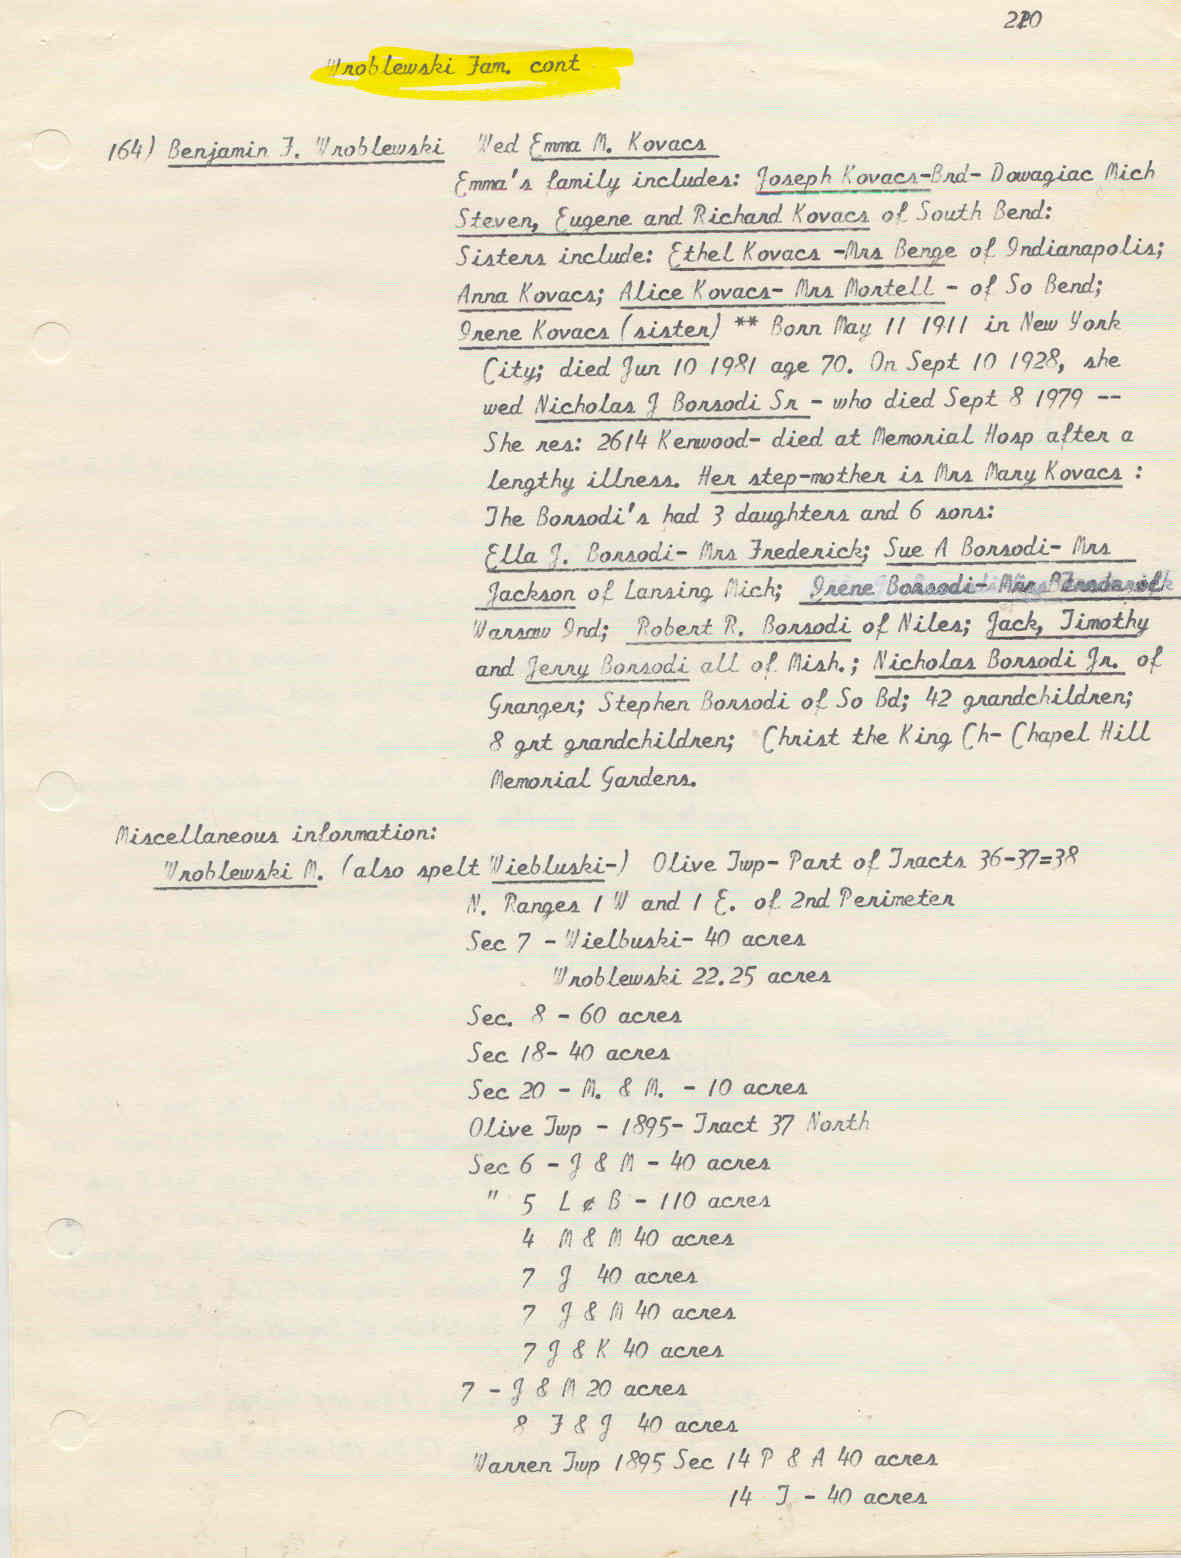 210
Wroblewski Fam. cont
164) Benjamin F. Wroblewski Wed Emma M. Kovacs
Emma's family includes: Joseph Kovacs-Brd- Dowagiac Mich
Steven, Eugene and Richard Kovacs of South Bend:
Sisters include: Ethel Kovacs -Mrs Benge of Indianapolis;
Anna Kovacs; Alice Kovacs- Mrs Mortell - of So Bend;
Irene Kovacs (sister) ** Born May 11 1911 in New York
City; died Jun 10 1981 age 70. On Sept 10 1928, she
wed Nicholas J Borsodi Sr - who died Sept 8 1979 --
She res: 2614 Kenwood- died at Memorial Hosp after a
lengthy illness. Her step-mother is Mrs Mary Kovacs :
The Borsodi's had 3 daughters and 6 sons:
Ella J. Borsodi- Mrs Frederick; Sue A Borsodi- Mrs
Jackson of Lansing Mich; Irene Borsodi- Mrs of
Warsaw Ind; Robert R. Borsodi of Niles; Jack, Timothy
and Jerry Borsodi all of Mish.; Nicholas Borsodi Jr. of
Granger; Stephen Borsodi of So Bd; 42 grandchildren;
8 grt grandchildren; Christ the King Ch- Chapel Hill
Memorial Gardens.
Miscellaneous information:
Wroblewski M. (also spelt Wiebluski-) Olive Twp- Part of Tracts 36-37=38
N. Ranges 1 W and 1 E. of 2nd Perimeter
Sec 7 - Wielbuski- 40 acres
Wroblewski 22.25 acres
Sec. 8 - 60 acres
Sec 18- 40 acres
Sec 20 - M. & M. - 10 acres
Olive Twp - 1895- Tract 37 North
Sec 6 - J & M - 40 acres
" 5 L ¢ B - 110 acres
4 M & M 40 acres
7 J 40 acres
7 J & M 40 acres
7 J & K 40 acres
7 - J & M 20 acres
8 F & J 40 acres
Warren Twp 1895 Sec 14 P & A 40 acres
14 T - 40 acres